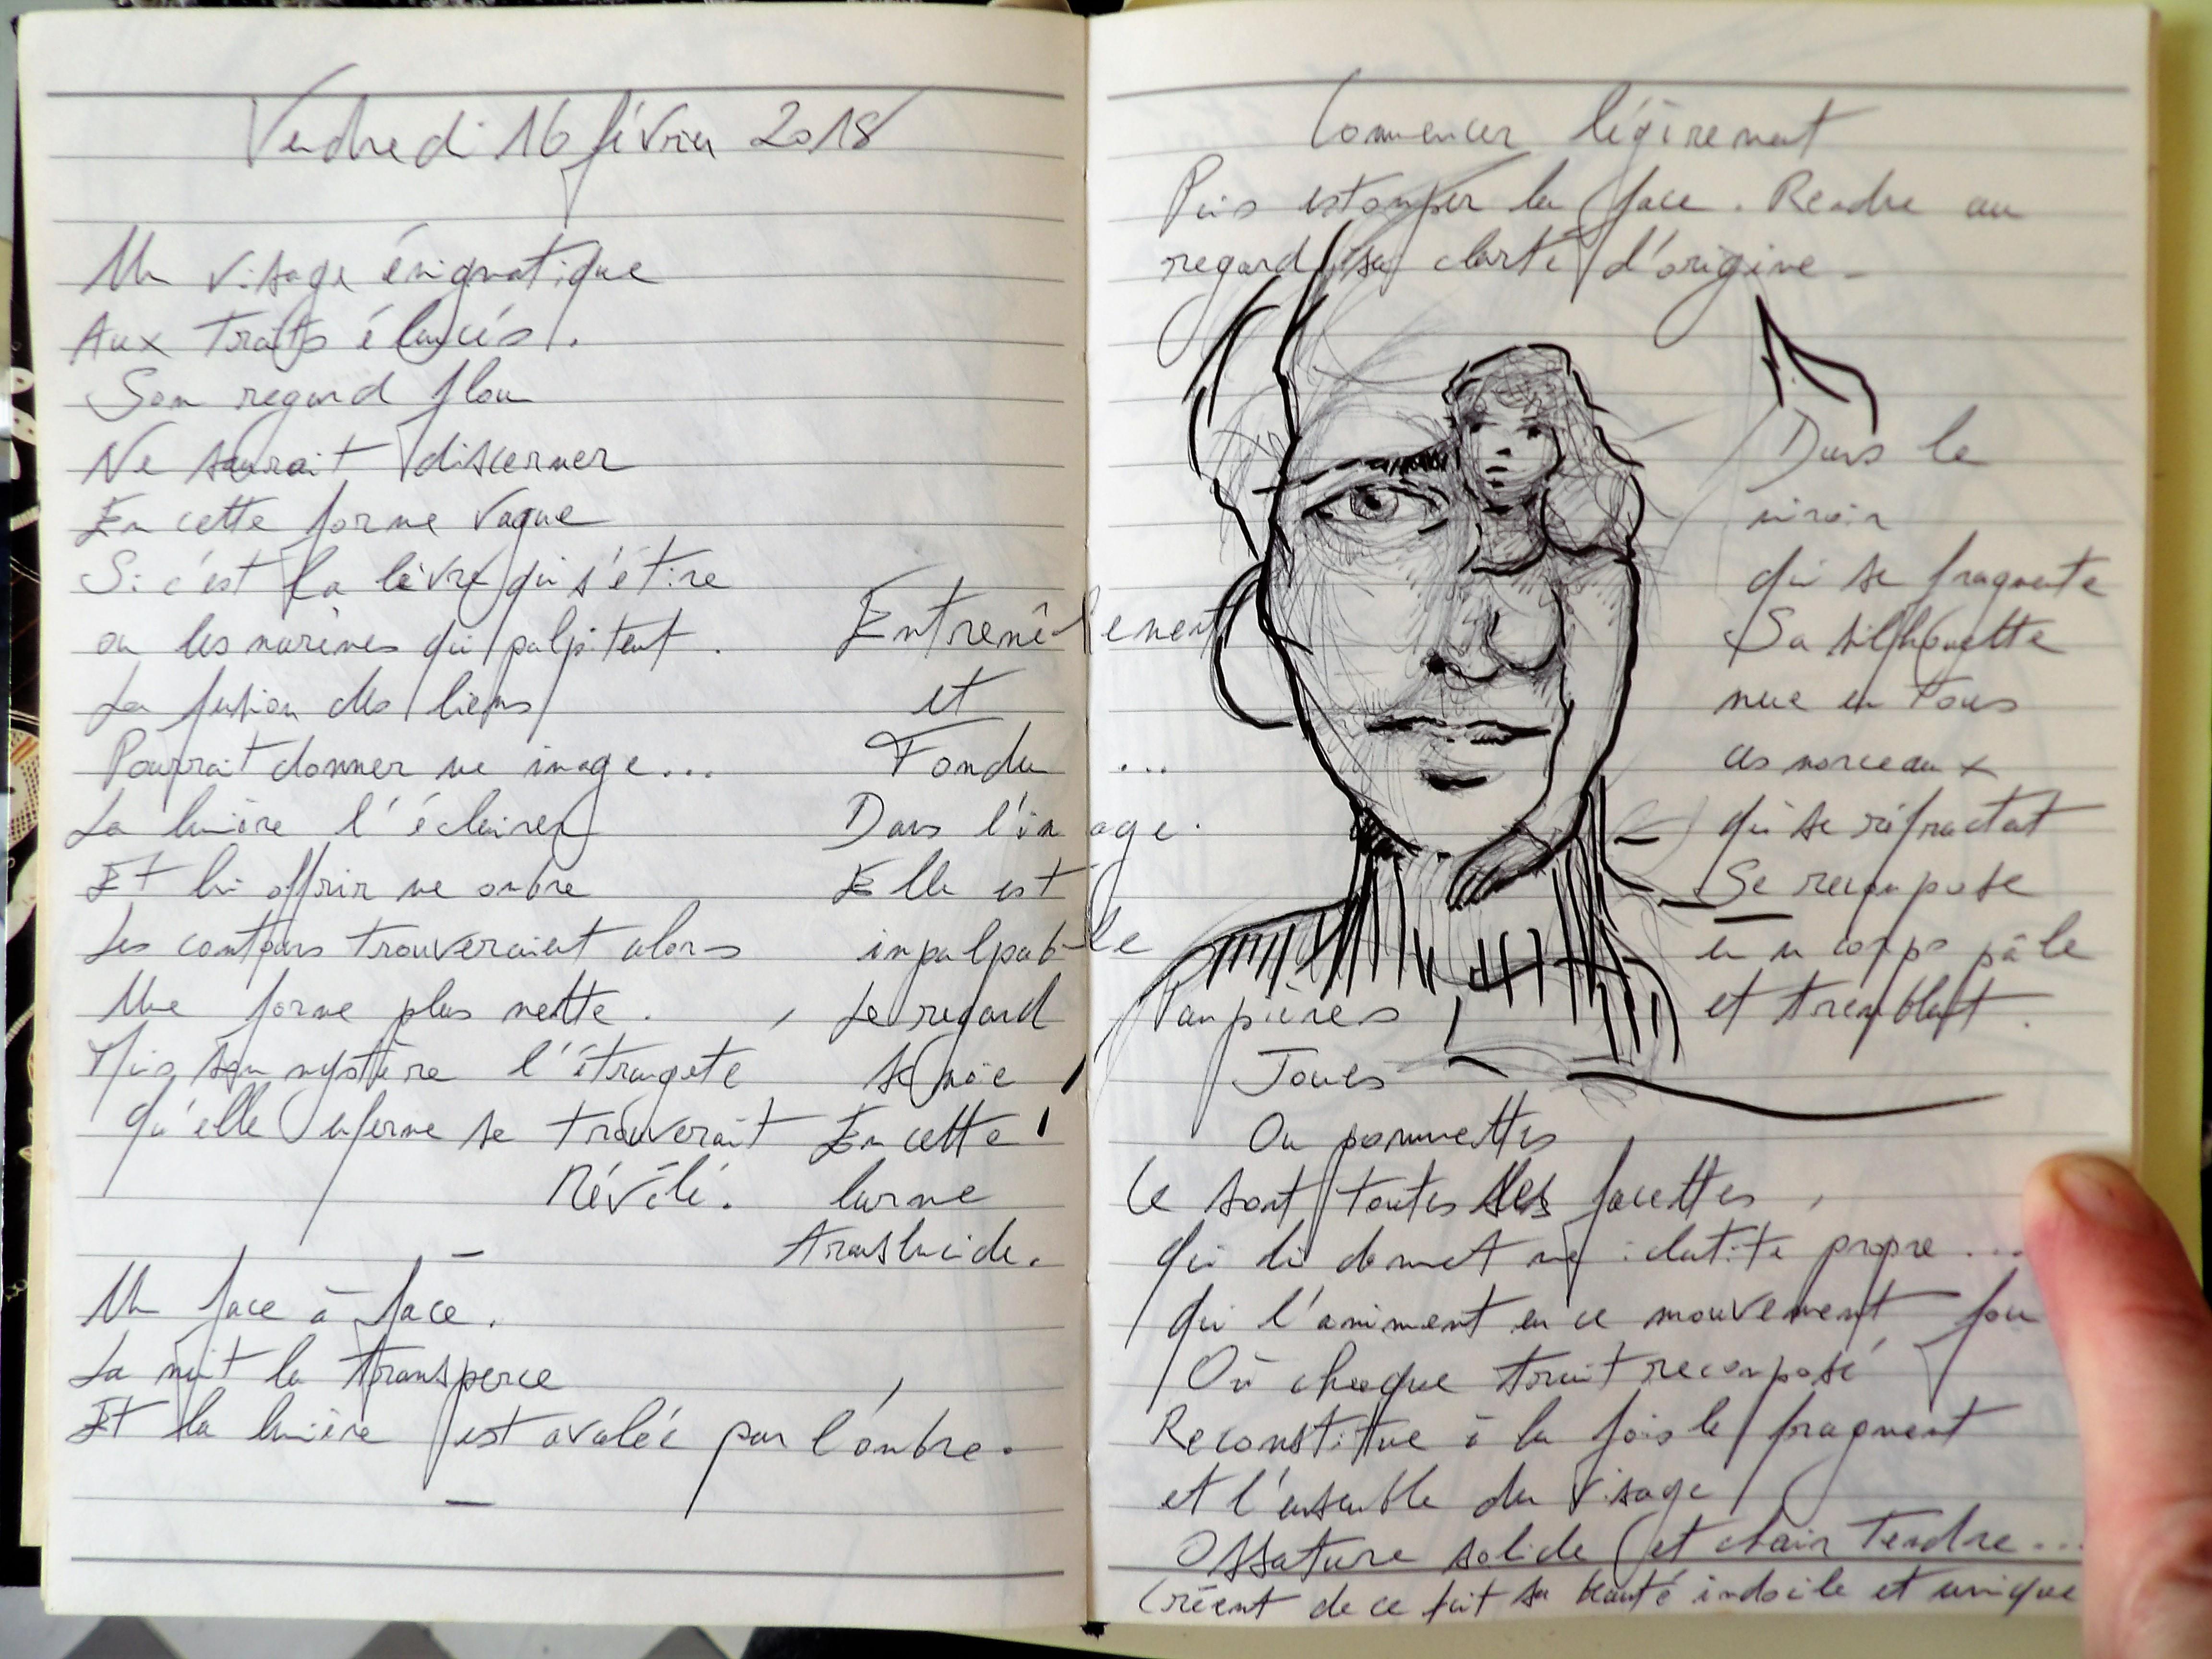 Vendredi 16 février 2018
Un visage énigmatique
Aux traits élancés.
Son regard flou
Ne saurait discerner
En cette forme vague
Si c'est la lèvre qui s'étire
ou les narines qui palpitent.
La fusion des liens
Pourrait donner une image...
La lumière l'éclairer
Et lui offrir une ombre
Les contours trouveraient alors
Une forme plus nette.
Mis son mystère l'étrangeté
qu'elle enferme se trouverait
Révélé.
Un face à face.
La nuit la transperce
Et la lumière est avalée par l'ombre.
Entremêlement
et
Fondu ...
Dans l'image.
Elle est
impalpable
Le regard
se noie
En cette
larme
translucide.
Commencer légèrement
Puis estomper la face. Rendre au
regard sa clarté d'origine
Dans le
miroir
qui se fragmente
Sa silhouette
nue en tous
ces morceaux
qui se réfractent
Se recompose
en un corps pâle
et tremblant.
Paupières
Joues
Ou pommettes
Ce sont toutes ses facettes,
qui lui donnent une identité propre...
qui l'animent en ce mouvement fou
Où chaque trait recomposé
Reconstitue à la fois le fragment
et l'ensemble du visage
Ossature solide et chair tendre...
Créent de ce fait sa beauté indocile et unique